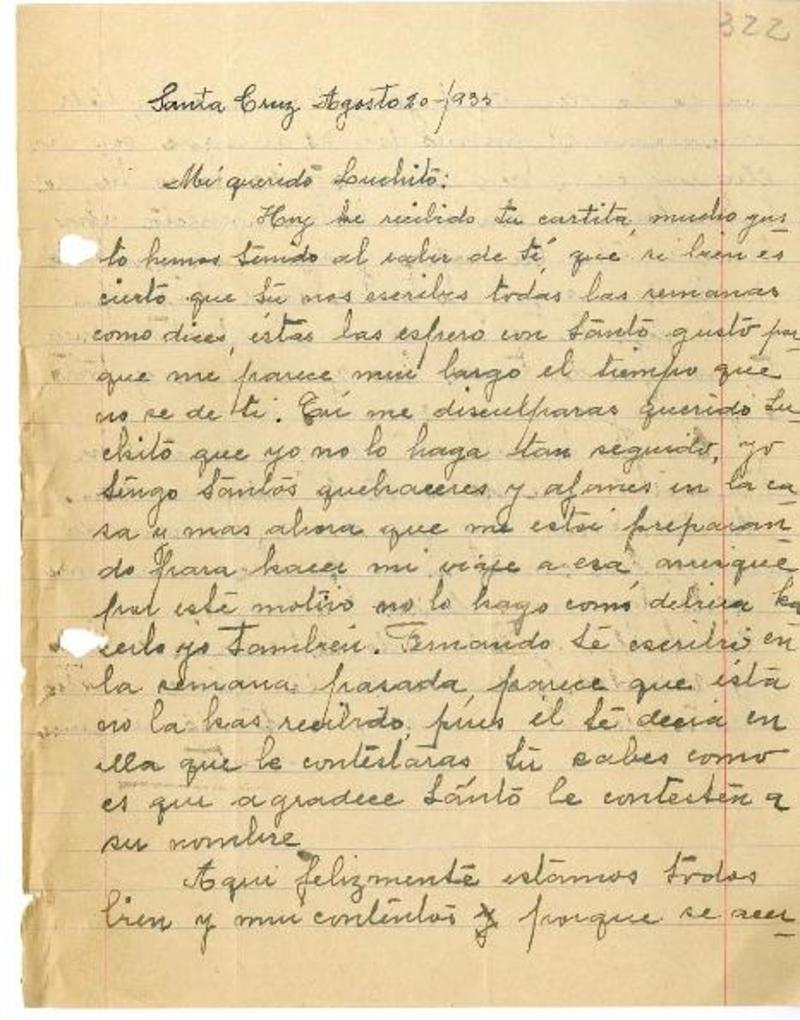 322
Santa Cruz Agosto 20-/935
Mi querido Luchito:
Hoy he recibido tu cartita, mucho gus-
to hemos tenido al saber de ti, que si bien es
cierto que tú nos escribes todas las semanas
como dices, éstas las espero con tánto gusto por
que me parece mui largo el tiempo que
no se de ti. Tú me disculparas querido Lu-
chito que yo no lo haga tan seguido, yo
tengo tántos quehaceres y afanes en la ca-
sa y mas ahora que me estoi preparan-
do para hacer mi viaje a esa aunque
por este motivo no lo hago como debiera ha
cerlo yo tambien. Fernando te escribió en
la semana pasada, parece que ésta
no la has recibido, pues él te decia en
ella que le contestáras tú sabes como
es que agradece tánto le contestén a
su nombre
Aqui felizmente estamos todos
bien y mui contentos y porque se acer-